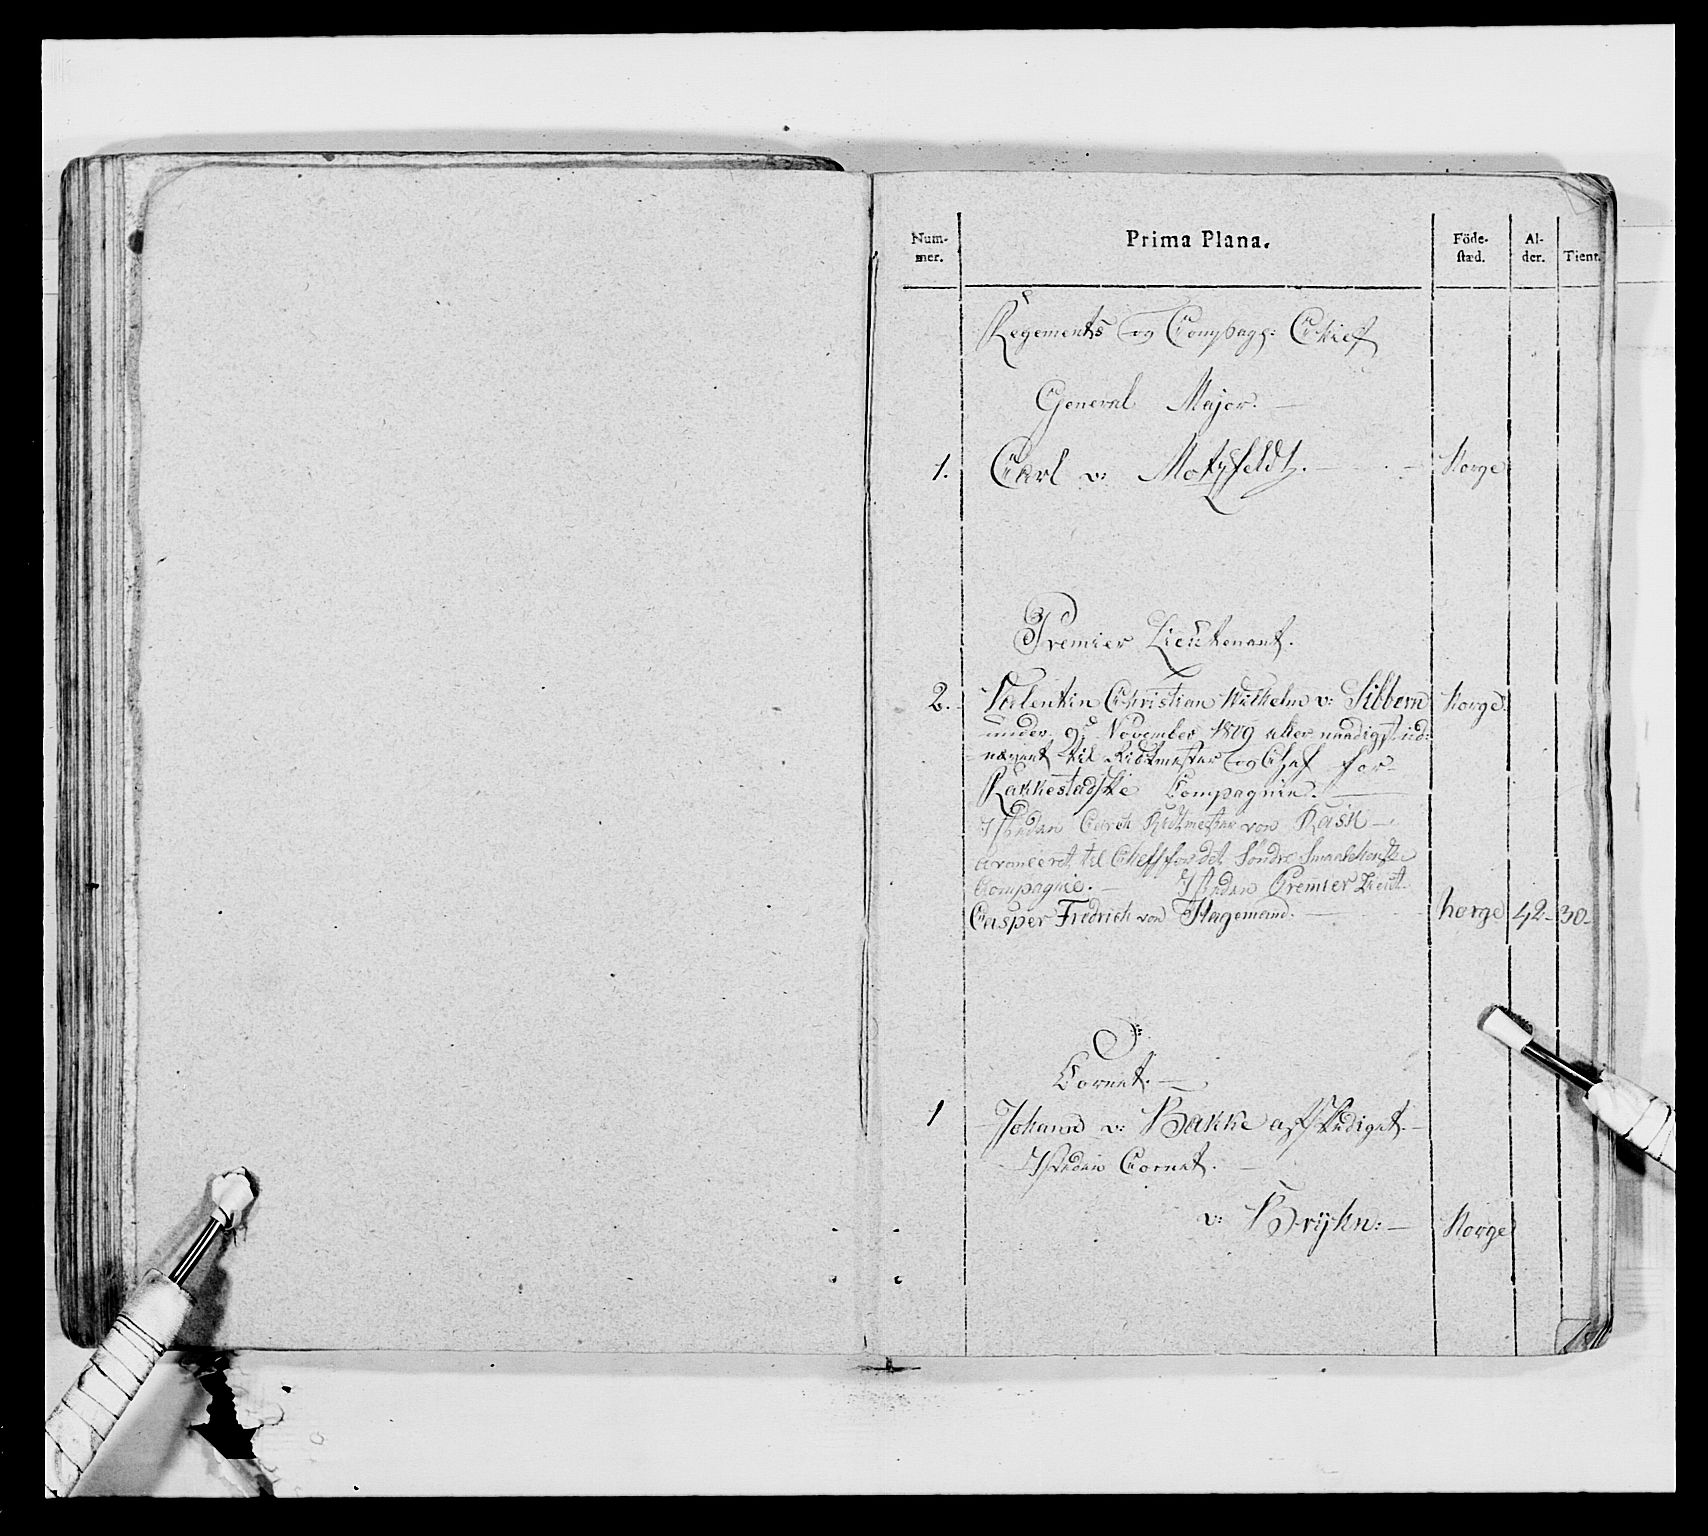 Num-
mer.
Prima Plana.
Föde-
stæd.
Al-
der.
Tient.
Regements og Compags: Chief
General Major.
1. Carl v: Motzfeldt. Norge
Premier Lieutenant.
2. Valentin Christian Wilhelm v: Sibbern Norge
under 9d November 1809 aller naadigst ud-
nævnt til Ridtmester og Chef for
Rakkestadske Compagnie.
Isteden Ridtmester von Rask
avanceret til Cheff for det Søndre Smaalehnske
Compagnie. Isteden Premier Lieut.
Casper Fredrich von Hagemand. Norge 42 30
Cornet.
1 Johann v: Bakke afskediget.
Isteden Cornet.
v: Norge